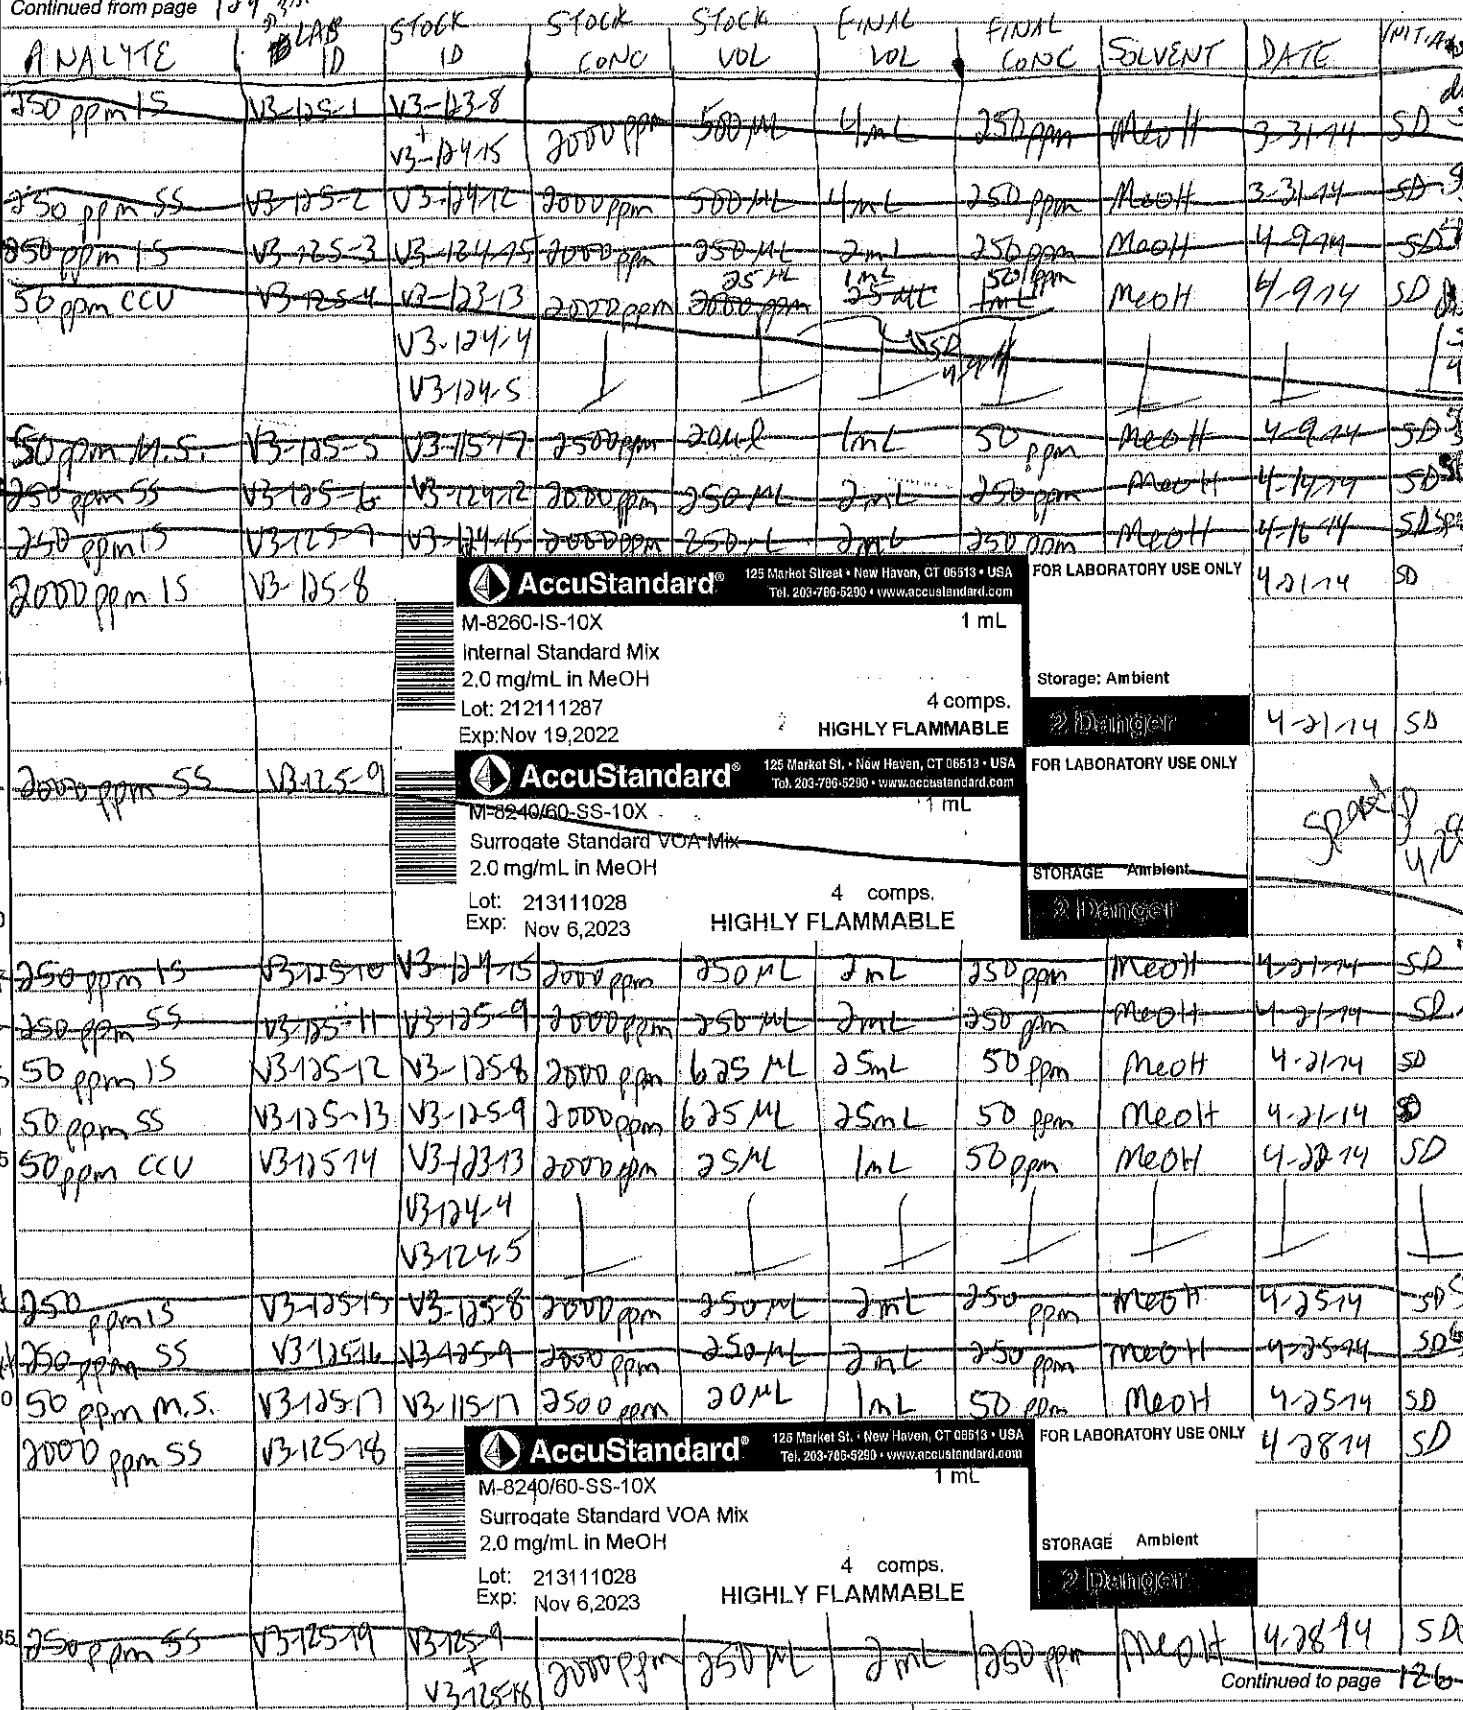 Continued from page 124
ANALYTE LAB ID STOCK ID STOCK CONC STOCK VOL FINAL VOL FINAL CONC SOLVENT DATE
250 ppm IS V3-125-1 V3-123-8 + V3-124-15 2000 ppm 500 µL 4 mL 250 ppm MeoH 3-31-14 SD
250 ppm SS V3-125-2 V3-124-12 2000 ppm 500 µL 4 mL 250 ppm MeoH 3-31-14 SD
250 ppm IS V3-125-3 V3-124-15 2000 ppm 250 µL 2 mL 250 ppm MeoH 4-9-14 SD
25 µL 1 mL 50 ppm
50 ppm CCV V3-125-4 V3-123-13 2000 ppm 2000 ppm 25 µL 1 mL MeoH 4-9-14 SD
V3-124-4 SD
V3-124-5
50 ppm M.S. V3-125-5 V3-115-17 2500 ppm 20 µl 1 mL 50 ppm MeoH 4-9-14 SD
250 ppm SS V3-125-6 V3-124-12 2000 ppm 250 µL 2 mL 250 ppm MeoH 4-14-14 SD
250 ppm IS V3-125-7 V3-124-15 2000 ppm 250 µL 2 mL 250 ppm MeoH 4-16-14 SD
2000 ppm IS V3-125-8 4-21-14 SD
AccuStandard® 125 Market Street • New Haven, CT 06513 • USA
Tel. 203-786-5290 • www.accustandard.com
FOR LABORATORY USE ONLY
M-8260-IS-10X 1 mL
Internal Standard Mix
2.0 mg/mL in MeOH
Storage: Ambient
Lot: 212111287 4 comps.
Exp:Nov 19,2022 HIGHLY FLAMMABLE
2 Danger
4-21-14 SD
2000 ppm SS V3-125-9
AccuStandard® 125 Market St. • New Haven, CT 06513 • USA
Tel. 203-786-5290 • www.accustandard.com
FOR LABORATORY USE ONLY
M-8240/60-SS-10X 1 mL
Surrogate Standard VOA Mix
2.0 mg/mL in MeOH
STORAGE Ambient
Lot: 213111028 4 comps.
Exp: Nov 6,2023 HIGHLY FLAMMABLE
2 Danger
250 ppm IS V3-125-10 V3-124-15 2000 ppm 250 µL 2 mL 250 ppm MeoH 4-21-14 SD
250 ppm SS V3-125-11 V3-125-9 2000 ppm 250 µL 2 mL 250 ppm MeoH 4-21-14 SD
50 ppm IS V3-125-12 V3-125-8 2000 ppm 625 µL 25 mL 50 ppm MeoH 4-21-14 SD
50 ppm SS V3-125-13 V3-125-9 2000 ppm 625 µL 25 mL 50 ppm MeoH 4-21-14 SD
50 ppm CCV V3-125-14 V3-123-13 2000 ppm 25 µL 1 mL 50 ppm MeoH 4-22-14 SD
V3-124-4
V3-124-5
250 ppm IS V3-125-15 V3-125-8 2000 ppm 250 µL 2 mL 250 ppm MeoH 4-25-14 SD
250 ppm SS V3-125-16 V3-125-9 2000 ppm 250 µL 2 mL 250 ppm MeoH 4-25-14 SD
50 ppm M.S. V3-125-17 V3-115-17 2500 ppm 20 µL 1 mL 50 ppm MeoH 4-25-14 SD
2000 ppm SS V3-125-18 4-28-14 SD
AccuStandard® 125 Market St. • New Haven, CT 06513 • USA
Tel. 203-786-5290 • www.accustandard.com
FOR LABORATORY USE ONLY
M-8240/60-SS-10X 1 mL
Surrogate Standard VOA Mix
2.0 mg/mL in MeOH
STORAGE Ambient
Lot: 213111028 4 comps.
Exp: Nov 6,2023 HIGHLY FLAMMABLE
2 Danger
35 250 ppm SS V3-125-19 V3-125-9 + V3-125-18 2000 ppm 250 µL 2 mL 250 ppm MeoH 4-28-14 SD
Continued to page 126